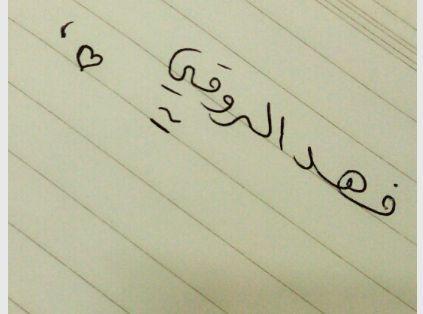 فهد الروقي ♡ ،